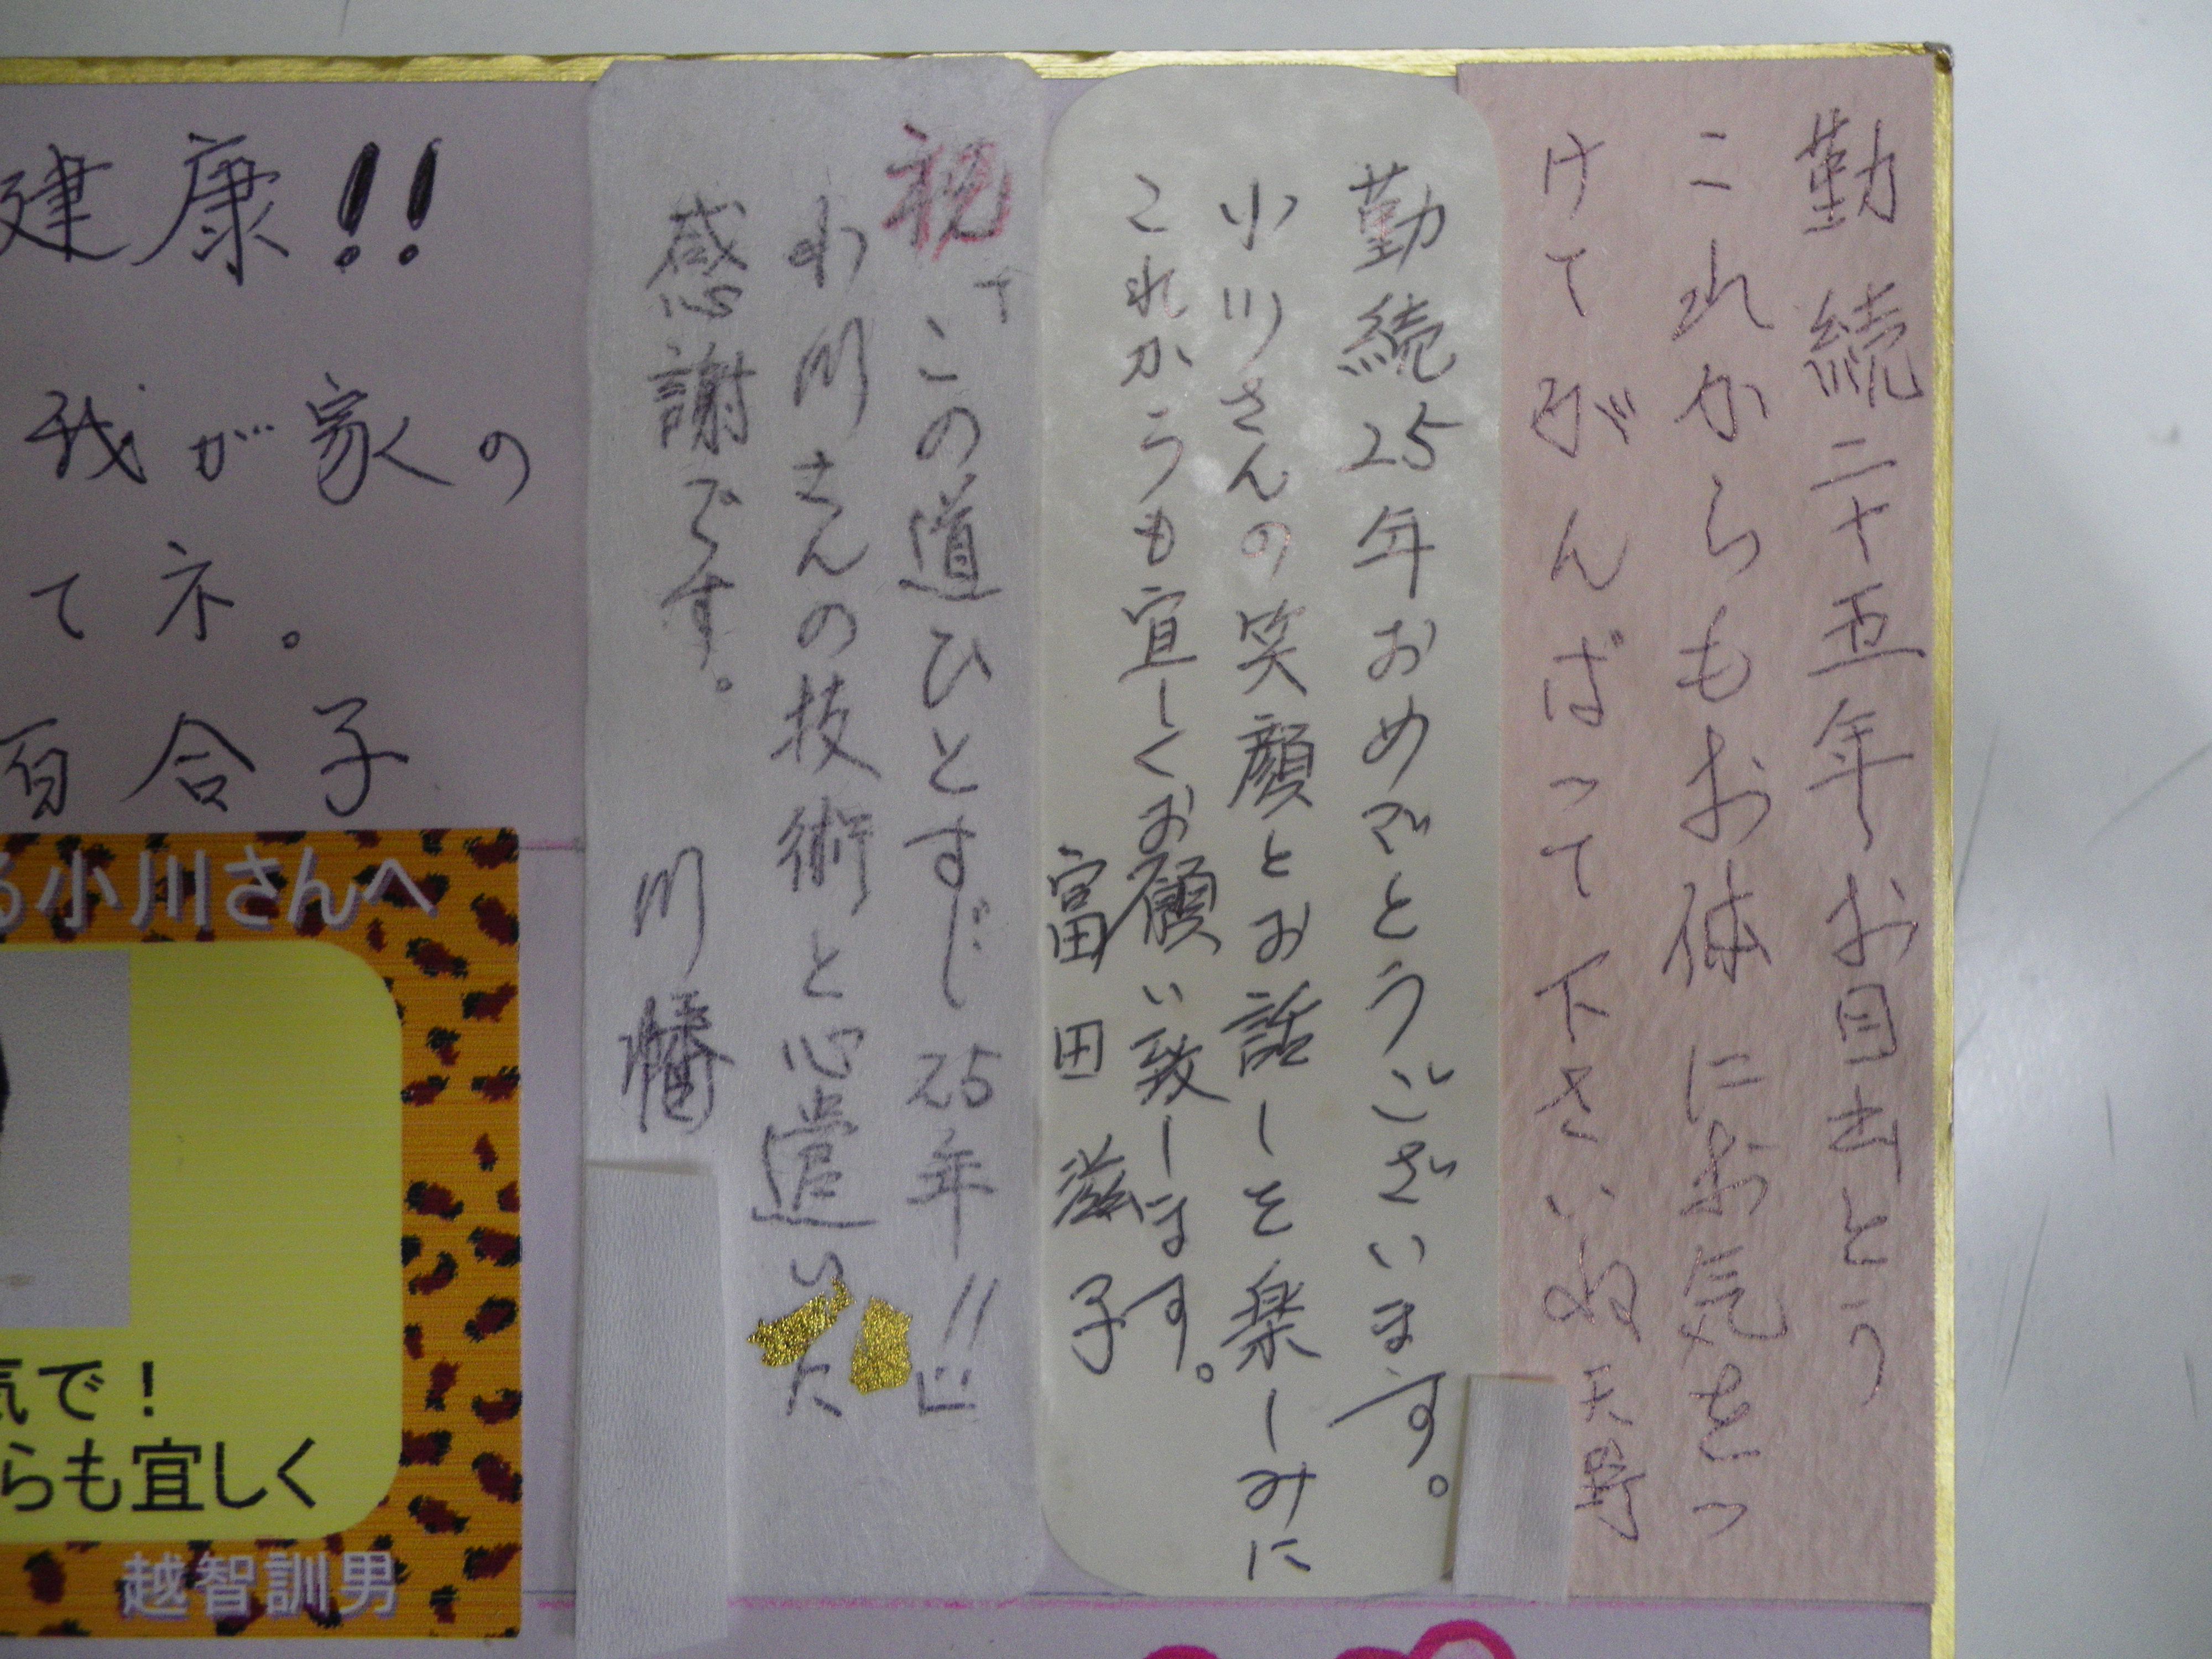 勤続二十五年お目出とう
これからもお体にお気をつ
けてがんばって下さいね
天野
勤続25年おめでとうございます。
小川さんの笑顔とお話しを楽しみに
これからも宜しくお願い致します。
富田滋子
祝
「この道ひとすじ25年!!」
小川さんの技術と心遣いに
感謝です。
川幡
建康!!
我が家の
てネ。
百合子
る小川さんへ
気で!
らも宜しく
越智訓男